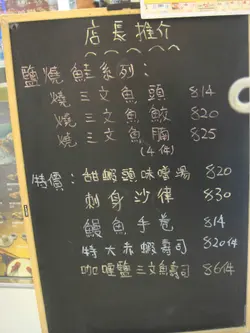 店長推介
鹽燒鮭系列:
燒三文魚頭 $14
燒三文魚鮫 $20
燒三文魚腩 $25
(4件)
特價: 甜蝦頭味噌湯 $20
刺身沙律 $30
鰻魚手卷 $14
特大赤蝦壽司 $20/件
咖喱鹽三文魚壽司 $6/件